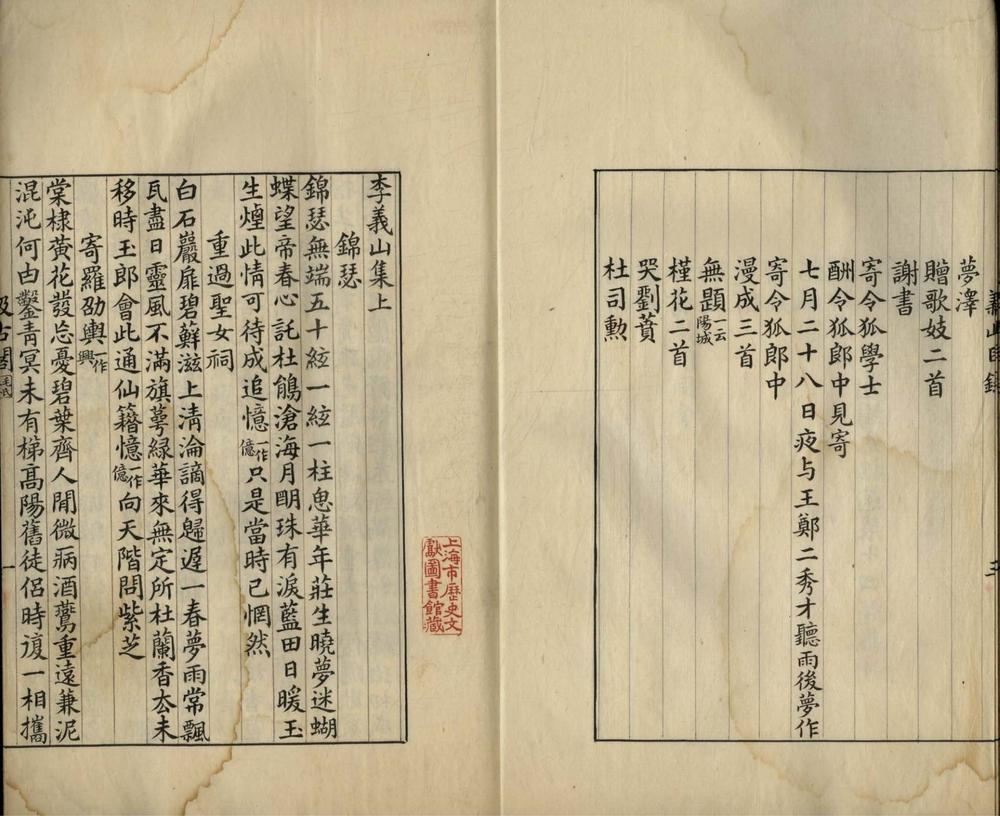 夢澤
贈歌妓二首
謝書
寄令狐學士
酬令狐郎中見寄
七月二十八日夜与王鄭二秀才聽雨後夢作
寄令狐郎中
漫成三首
無題一云陽城
槿花二首
哭劉蕡
杜司勲
上海市歷史文
獻圖書館藏
李義山集上
錦瑟
錦瑟無端五十絃一絃一柱思華年莊生曉夢迷蝴
蝶望帝春心託杜鵑滄海月明珠有淚藍田日暖玉
生煙此情可待成追憶一作億只是當時已惘然
重過聖女祠
白石巖扉碧蘚滋上淸淪謫得歸遲一春夢雨常飄
瓦盡日靈風不滿旗萼緑華來無定所杜蘭香去未
移時玉郎會此通仙籍憶一作億向天階問紫芝
寄羅劭輿一作興
棠棣黄花發忘憂碧葉齊人閒微病酒鷰重遠兼泥
混沌何由鑿青冥未有梯高陽舊徒侶時復一相攜
一